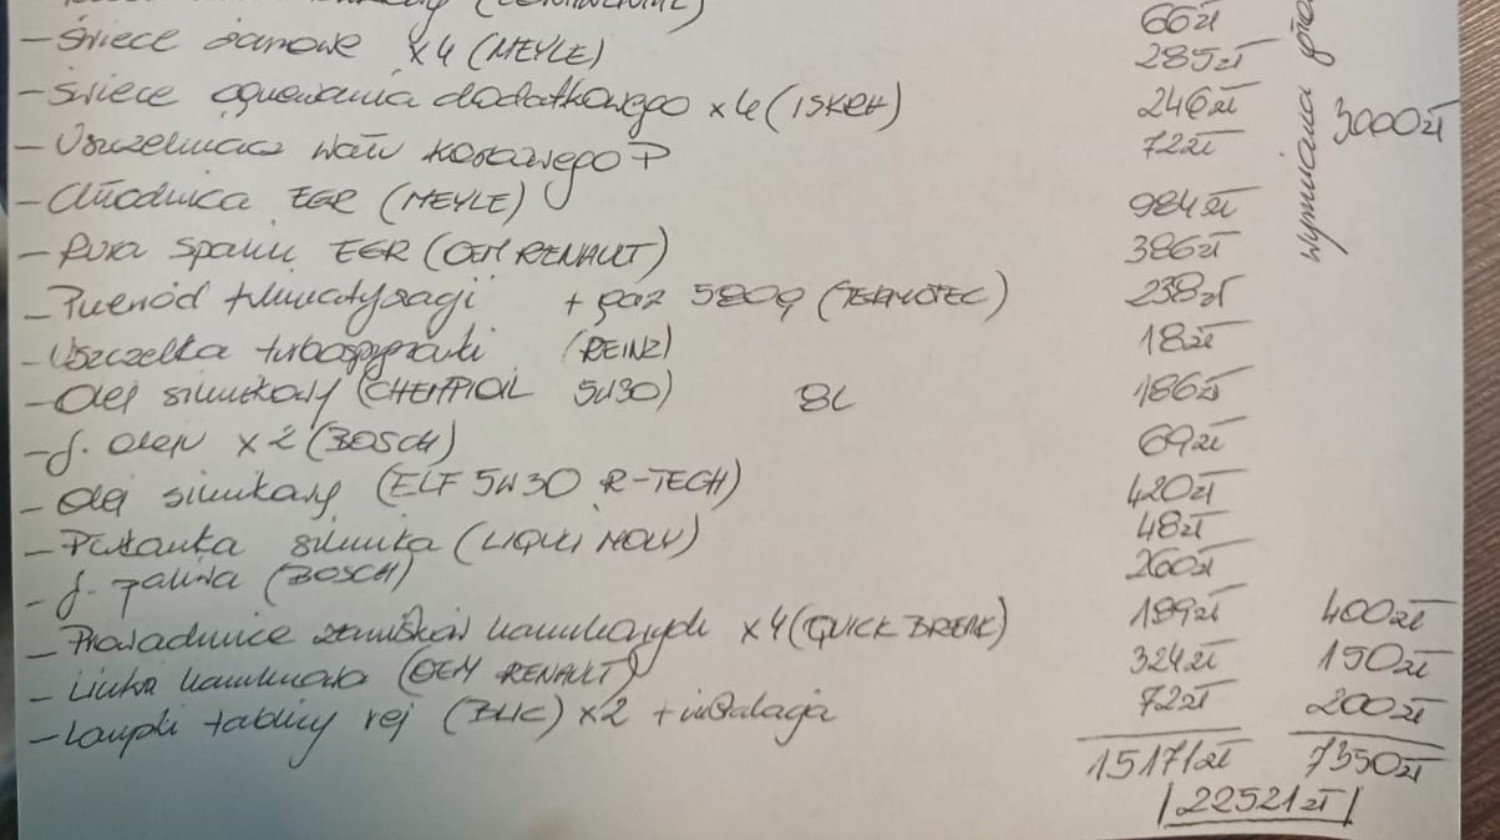 (CONTINENTAL) 66zł
- Świece żarowe x4 (MEYLE) 285zł
- Świece ogrzewania dodatkowego x4 (ISKRA) 246zł
- Uszczelniacz wału korbowego P 72zł
wymiana
3000zł
- Chłodnica EGR (MEYLE) 984zł
- Rura spalin EGR (OEM RENAULT) 386zł
- Przewód klimatyzacji + gaz 580g (TERMOTEC) 238zł
- Uszczelka turbosprężarki (REINZ) 18zł
- Olej silnikowy (CHEMPIOIL 5W30) 8L 186zł
- f. oleju x2 (BOSCH) 69zł
- Olej silnikowy (ELF 5W30 R-TECH) 420zł
- Płukanka silnika (LIQUI MOLY) 48zł
- f. paliwa (BOSCH) 260zł
- Prowadnice zacisków hamulcowych x4 (QUICK BREAK) 199zł 400zł
- Linka hamulcowa (OEM RENAULT) 324zł 150zł
- Lampki tablicy rej (BLIC) x2 + instalacja 72zł 200zł
15171zł 7350zł
22521zł